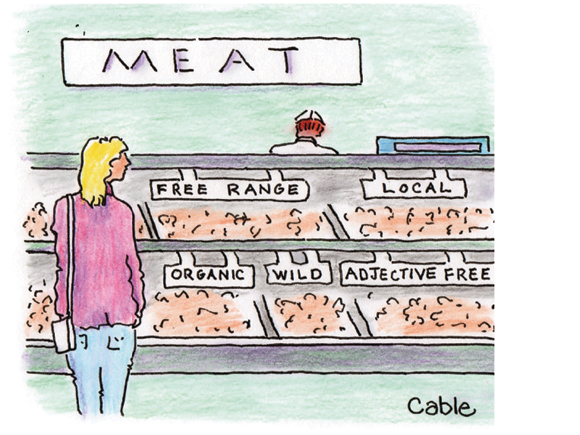 MEAT
FREE RANGE
LOCAL
ORGANIC
WILD
ADJECTIVE FREE
Cable